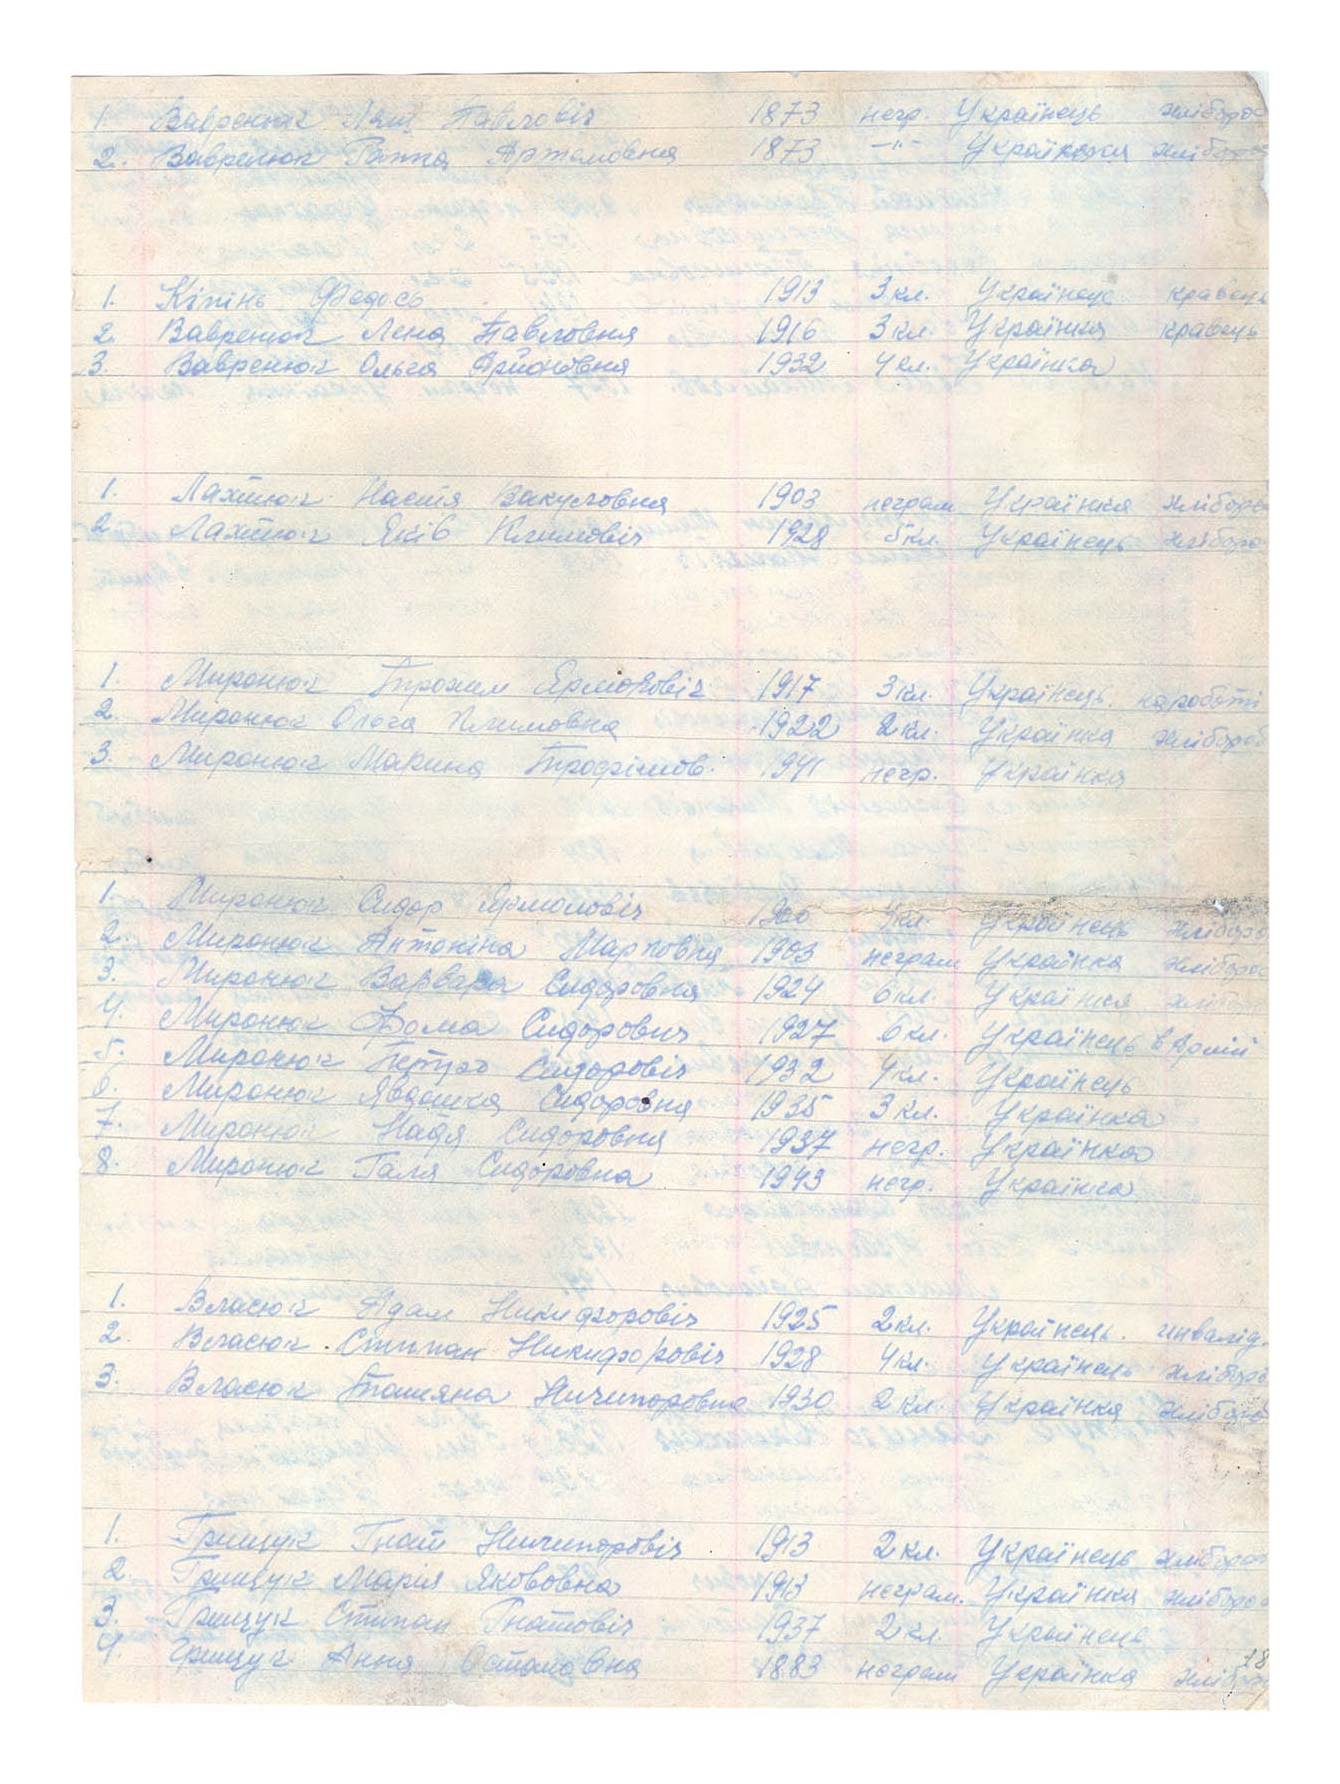 1. Вавренюк Павловіч 1873 негр. Українець хлібороб
2. Вавренюк Ганна Артемовна 1873 —"— Українка хлібороб
1. Кіпінь Федось 1913 3 кл. Українець кравець
2. Вавренюк Лена Павловня 1916 3 кл. Українка кравець
3. Вавренюк Ольга 1932 4 кл. Українка
1. Лахтюк Настя Вакуловня 1903 неграм Українка хлібороб
2. Лахтюк Яків Климовіч 1928 5 кл. Українець хлібороб
1. Миронюк Трохим Ярмоловіч 1917 3 кл. Українець. на роботі
2. Миронюк Ольга Климовна 1922 2 кл. Українка хлібороб
3. Миронюк Марина Трофімов. 1941 негр. Українка
1. Миронюк Сидор Ярмоловіч 1900 4 кл. Українець хлібороб
2. Миронюк Антоніна Марковня 1903 неграм Українка хлібороб
3. Миронюк Варвара Сидоровня 1924 6 кл. Українка хлібороб
4. Миронюк Фома Сидорович 1927 6 кл. Українець в Армії
5. Миронюк Петро Сидоровіч 1932 4 кл. Українець
6. Миронюк Явдошка Сидоровня 1935 3 кл. Українка
7. Миронюк Надя Сидоровня 1937 негр. Українка
8. Миронюк Галя Сидоровна 1943 негр. Українка
1. Власюк Адам Никифоровіч 1925 2 кл. Українець. инвалід.
2. Власюк Стипан Никифоровіч 1928 4 кл. Українець хлібороб
3. Власюк Татяна Ничипоровна 1930 2 кл. Українка хлібороб
1. Грищук Гнат Ничипоровіч 1913 2 кл. Українець хлібороб
2. Грищук Марія Якововна 1913 неграм. Українка хлібороб
3. Грищук Стипан Гнатовіч 1937 2 кл. Українець
4. Грищук Ання Остаповна 1883 неграм Українка хлібороб
18